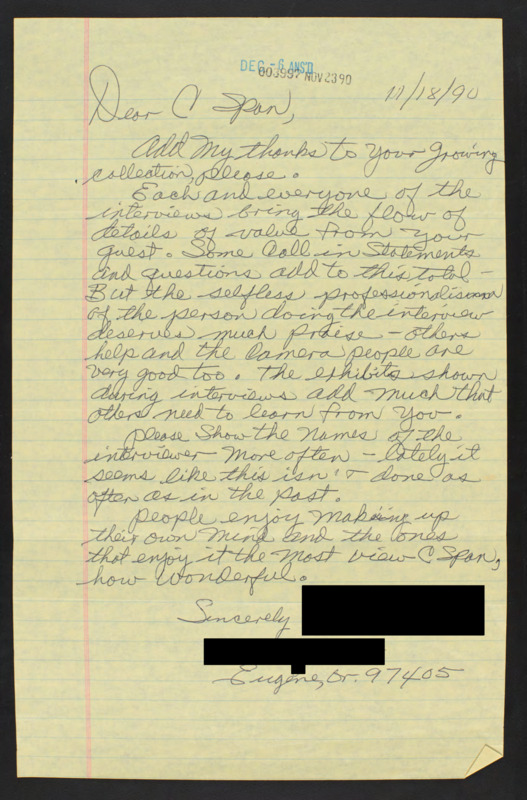 DEC - 6 ANS'D
003997 NOV 23 90
11/18/90
Dear C Span,
Add My thanks to your growing
collection, please.
Each and everyone of the
interviews bring the flow of
details of value from your
guest. Some Call in Statements
and questions add to this total -
But the selfless professionalism
of the person doing the interview
deserves much praise - others
help and the Camera people are
very good too. The exhibits shown
during interviews add much that
others need to learn from you.
please Show the Names of the
interviewer more often - lately it
seems like this isn't done as
often as in the past.
people enjoy making up
their own mind and the ones
that enjoy it the most view C Span,
how wonderful.
Sincerely
Eugene, Or. 97405